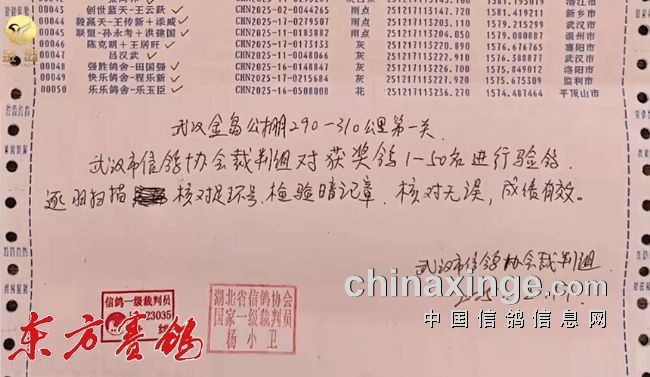 00043 创世蓝天-王云跃 ✓ CHN2025-02-0044265 雨点 251217113219. 1581.419211 新乡市
00044 毅高天-王传新+添威 ✓ CHN2025-17-0279507 雨点 武汉市
00045 联盟-孙永考+洪建国 ✓ CHN2025-11-0183882 雨点 武汉市
00046 陈克明+王居旺 ✓ CHN2025-17-0279033 251217113220.840 1576.676765 襄阳市
00047 吕汉武 ✓ CHN2025-11-0048066 251217113222.290 1576.580277 武汉市
00048 强胜鸽舍-田国强 ✓ CHN2025-16-0148847 251217113230.270 1575.849012 洛阳市
00049 快乐鸽舍-程乐新 ✓ CHN2025-17-0215684 251217113233.250 1575.575309 监利市
00050 乐乐鸽舍-乐玉臣 ✓ CHN2025-16-0500808 花 251217113236.700 1574.487464 平顶山市
武汉金岛公棚290-310公里第一关
武汉市信鸽协会裁判组对获奖鸽1-50名进行验鸽
逐羽扫描 核对足环号、检验暗记章,核对无误,成绩有效。
武汉市信鸽协会裁判组
信鸽一级裁判员
23035
湖北省信鸽协会
国家一级裁判员
杨小卫
东方赛鸽
chinaxinge.com
中国信鸽信息网